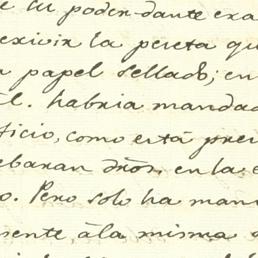 e su poder-dante exa
exivir la pieta qu
a papel sellado; en
l. habria mandad
ficio, como está pre
ebaran dros. en la e
o. Pero solo ha man
mente, a la misma